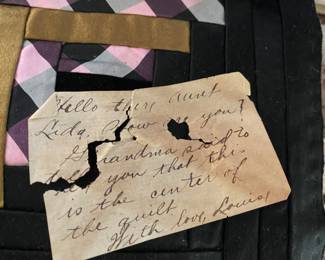 Hello there Aunt
Lida. How are you?
Grandma said to
tell you that this
is the center of
the quilt.
With love, Louise